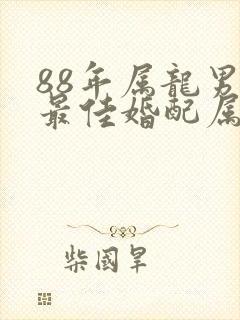 88年属龍男
最佳婚配属
柴國旱